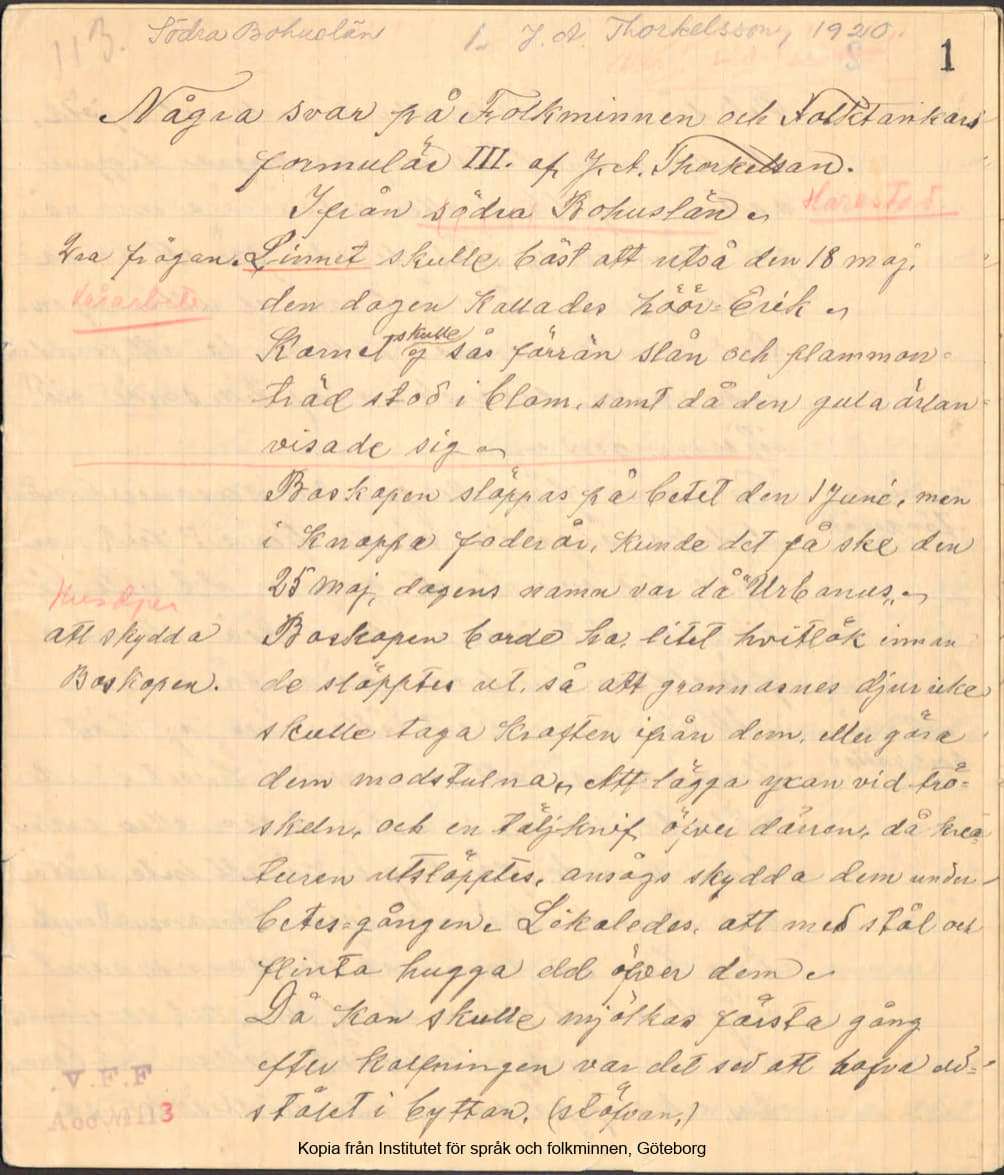 Södra Bohuslän 1. J. A. Thorkelsson, 1920.
1
Några svar på Folkminnen och Folktankars
formulär III. af J. A. Thorkelsson.
Ifrån södra Bohuslän. Harestad
2dra frågan. Linnet skulle bäst att utså den 18 maj.
Vårarbete den dagen kallades höör-Erik.
Kornet skulle ej sås förrän slån och plammon-
träd stod i blom, samt då den gula ärlan
visade sig.
Boskapen släppas på betet den 1 Juni, men
i knappa foderår, kunde det få ske den
25 Maj, dagens namn var då "Urbanus".
Kreatur
att skydda Boskapen borde ha, litet hvitlök innan
Boskapen. de släpptes ut, så att grannarnes djur icke
skulle taga kraften ifrån dem, eller göra
dem modstulna. Att lägga yxan vid trö-
skeln, och en täljknif öfver dörren, då krea-
turen utsläpptes, ansågs skydda dem under
betes-gången. Likaledes, att med stål och
flinta hugga eld öfver dem.
Då kon skulle mjölkas första gång
efter kalfningen var det sed att hafva eld-
stålet i byttan, (stäfvan,)
V.F.F
3
Kopia från Institutet för språk och folkminnen, Göteborg